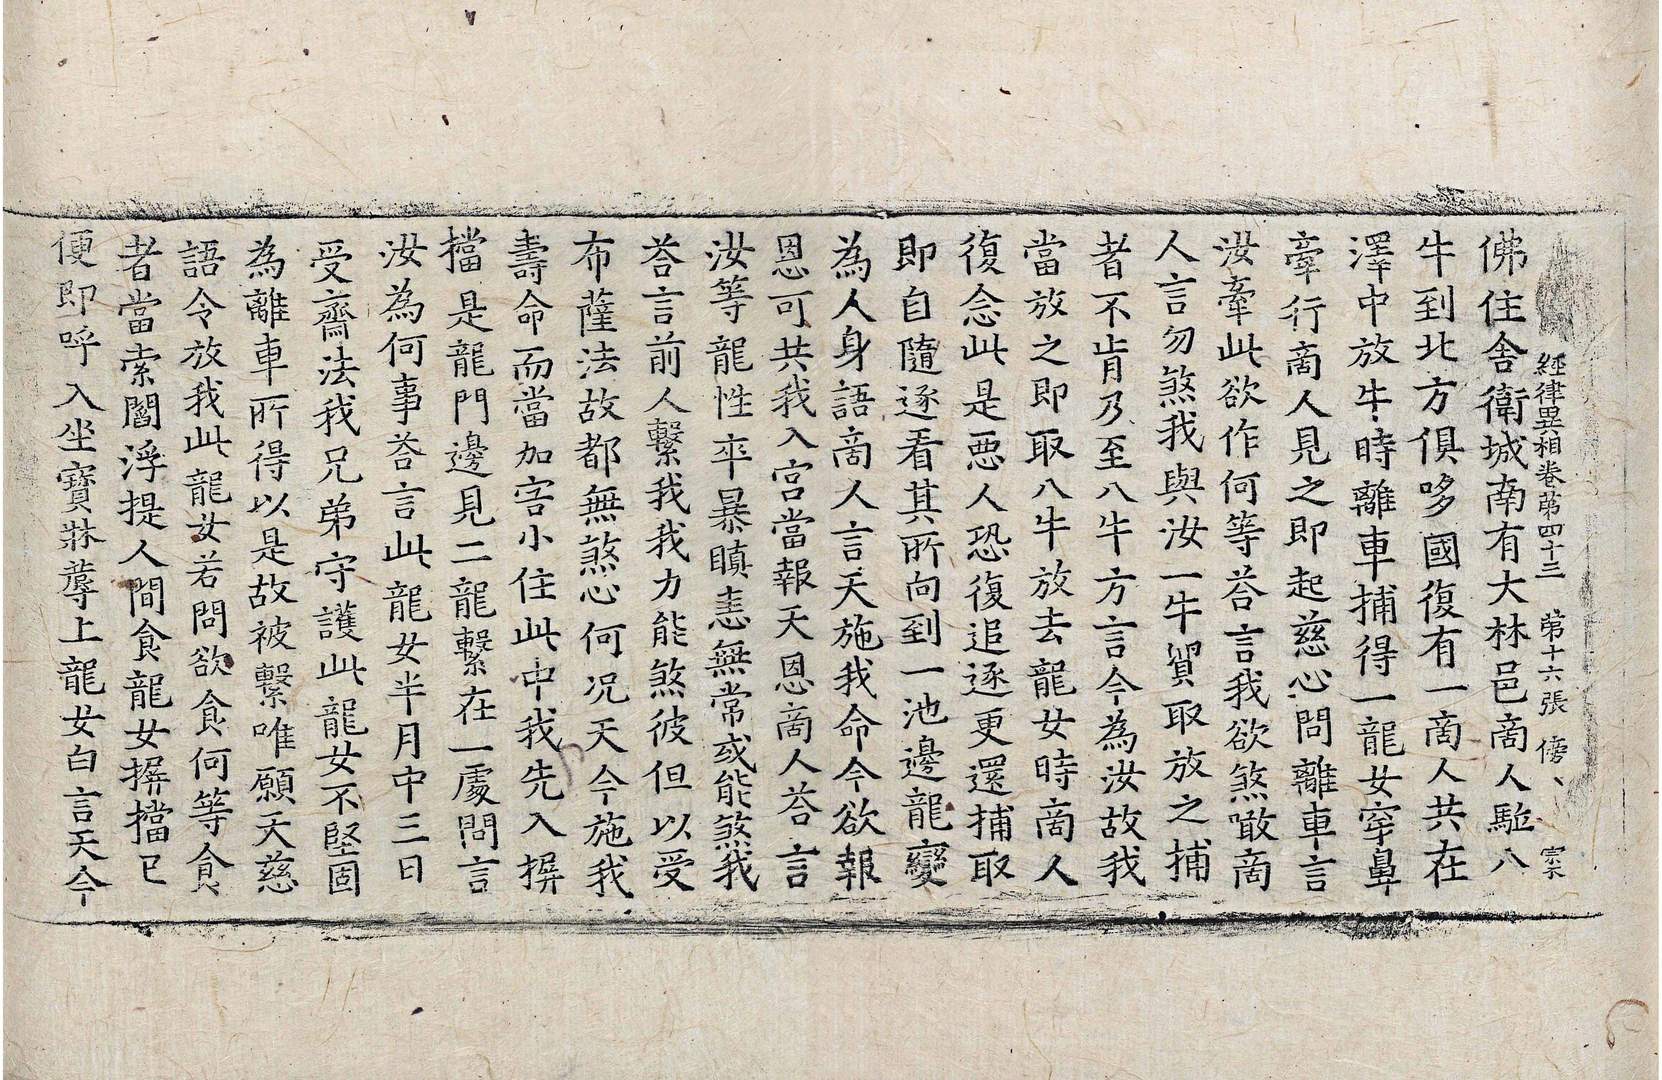 經律異相卷第四十三　第十六張　傍、　宗
佛住舍衛城南有大林邑啇人駈八
牛到北方俱哆國復有一啇人共在
澤中放牛時離車捕得一龍女穿鼻
牽行啇人見之即起慈心問離車言
汝牽此欲作何等荅言我欲煞噉啇
人言勿煞我與汝一牛貿取放之捕
者不肯乃至八牛方言今為汝故我
當放之即取八牛放去龍女時啇人
復念此是惡人恐復追逐更還捕取
即自隨逐看其所向到一池邊龍變
為人身語啇人言天施我命今欲報
恩可共我入宮當報天恩啇人荅言
汝等龍性卒暴瞋恚無常或能煞我
荅言前人繫我我力能煞彼但以受
布薩法故都無煞心何况天今施我
壽命而當加害小住此中我先入摒
擋是龍門邊見二龍繫在一處問言
汝為何事荅言此龍女半月中三日
受齋法我兄弟守護此龍女不堅固
為離車所得以是故被繫唯願天慈
語令放我此龍女若問欲食何等食
者當索閻浮提人間食龍女摒擋已
便即呼入坐寶牀蓐上龍女白言天今